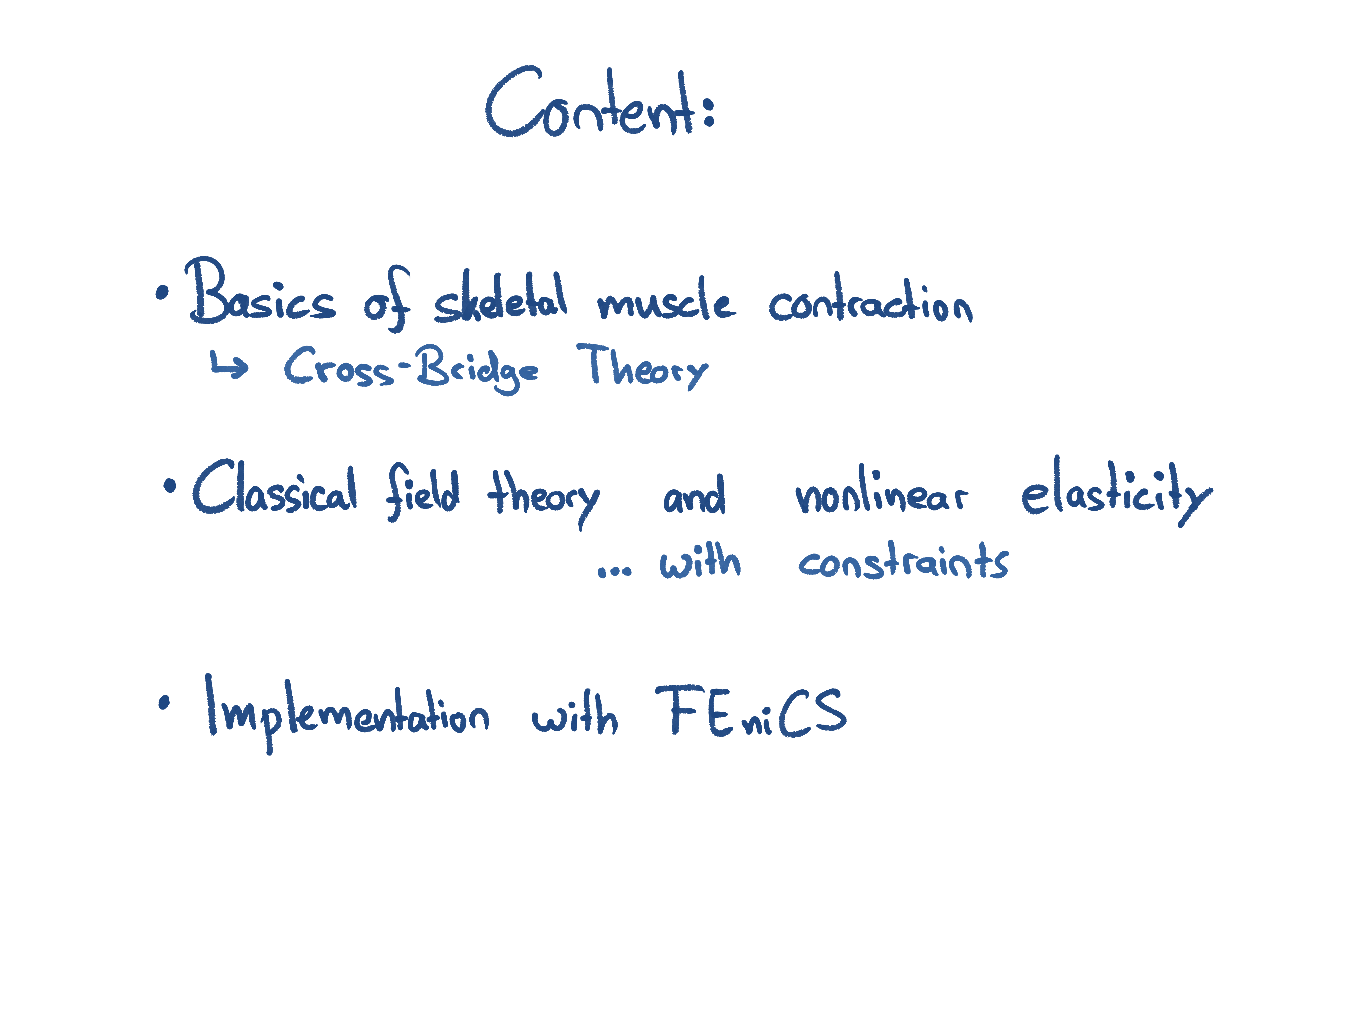 Content:
• Basics of skeletal muscle contraction
↳ Cross-Bridge Theory
• Classical field theory and nonlinear elasticity
... with constraints
• Implementation with FEniCS